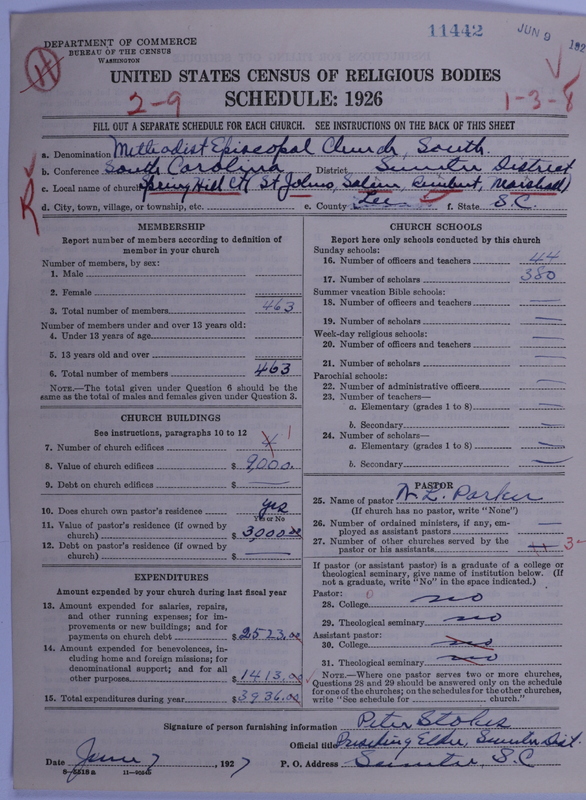 11442
JUN 9 192
DEPARTMENT OF COMMERCE
BUREAU OF THE CENSUS
WASHINGTON
UNITED STATES CENSUS OF RELIGIOUS BODIES
2-9 SCHEDULE: 1926 1-3-8
FILL OUT A SEPARATE SCHEDULE FOR EACH CHURCH. SEE INSTRUCTIONS ON THE BACK OF THIS SHEET
a. Denomination Methodist Episcopal Church, South.
b. Conference South Carolina District Sumter District
c. Local name of church Spring Hill Ct St Johns, Salem, Rembert, Marshall)
d. City, town, village, or township, etc. e. County Lee f. State S.C.
MEMBERSHIP
Report number of members according to definition of
member in your church
Number of members, by sex:
1. Male
2. Female
3. Total number of members 463
Number of members under and over 13 years old:
4. Under 13 years of age
5. 13 years old and over
6. Total number of members 463
NOTE.—The total given under Question 6 should be
the same as the total of males and females given under Question 3.
CHURCH BUILDINGS
See instructions, paragraphs 10 to 12
7. Number of church edifices 4 1
8. Value of church edifices $ 9000.
9. Debt on church edifices $
10. Does church own pastor's residence yes
Yes or No
11. Value of pastor's residence (if owned by
church) $ 3000.00
12. Debt on pastor's residence (if owned by
church) $
EXPENDITURES
Amount expended by your church during last fiscal year
13. Amount expended for salaries, repairs,
and other running expenses; for im-
provements or new buildings; and for
payments on church debt $ 2523.00
14. Amount expended for benevolences, in-
cluding home and foreign missions; for
denominational support; and for all
other purposes $ 1413.00
15. Total expenditures during year $ 3936.00
CHURCH SCHOOLS
Report here only schools conducted by this church
Sunday schools:
16. Number of officers and teachers 44
17. Number of scholars 380
Summer vacation Bible schools:
18. Number of officers and teachers
19. Number of scholars
Week-day religious schools:
20. Number of officers and teachers
21. Number of scholars
Parochial schools:
22. Number of administrative officers
23. Number of teachers—
a. Elementary (grades 1 to 8)
b. Secondary
24. Number of scholars—
a. Elementary (grades 1 to 8)
b. Secondary
PASTOR
25. Name of pastor W. L. Parker
(If church has no pastor, write "None")
26. Number of ordained ministers, if any, em-
ployed as assistant pastors
27. Number of other churches served by the
pastor or his assistants 3-
If pastor (or assistant pastor) is a graduate of a college or
theological seminary, give name of institution below. (If
not a graduate, write "No" in the space indicated.)
Pastor: 0
28. College no
29. Theological seminary no
Assistant pastor:
30. College no
31. Theological seminary no
NOTE.—Where one pastor serves two or more churches,
Questions 28 and 29 should be answered only on the schedule
for one of the churches; on the schedules for the other churches,
write "See schedule for church."
Signature of person furnishing information Peter Stokes
Official title Presiding Elder, Sumter Dist.
Date June 7, 1927 P. O. Address Sumter, S.C